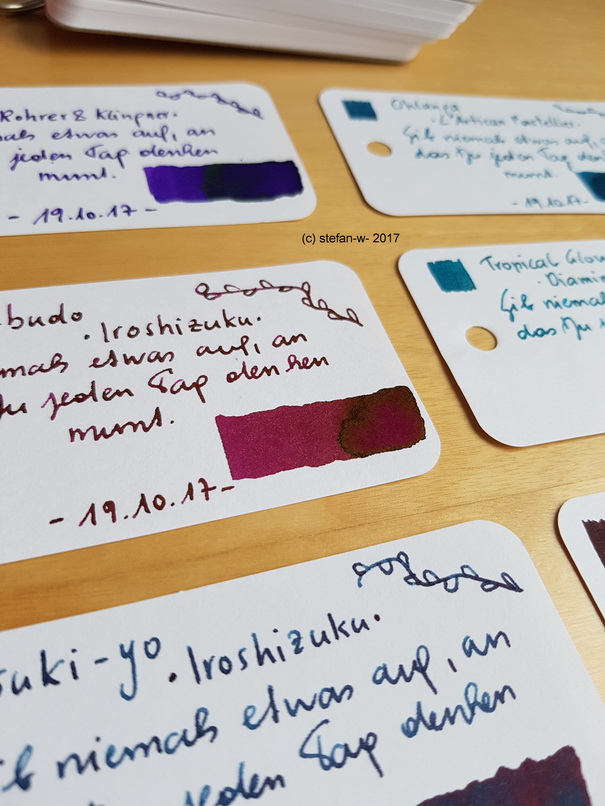 Rohrer & Klingner.
etwas auf, an
jeden Tag denken
musst.
- 19.10.17 -
L'Artisan Pastellier.
Gib niemals etwas auf,
das Du jeden Tag
musst.
- 19.10.17
(c) stefan-w- 2017
Tropical Glow
· Diamin
Gib niemals
das Du
-budo
· Iroshizuku ·
etwas auf, an
Du jeden Tag denken
musst.
- 19.10.17 -
suki-yo · Iroshizuku ·
Gib niemals etwas auf, an
jeden Tag denken